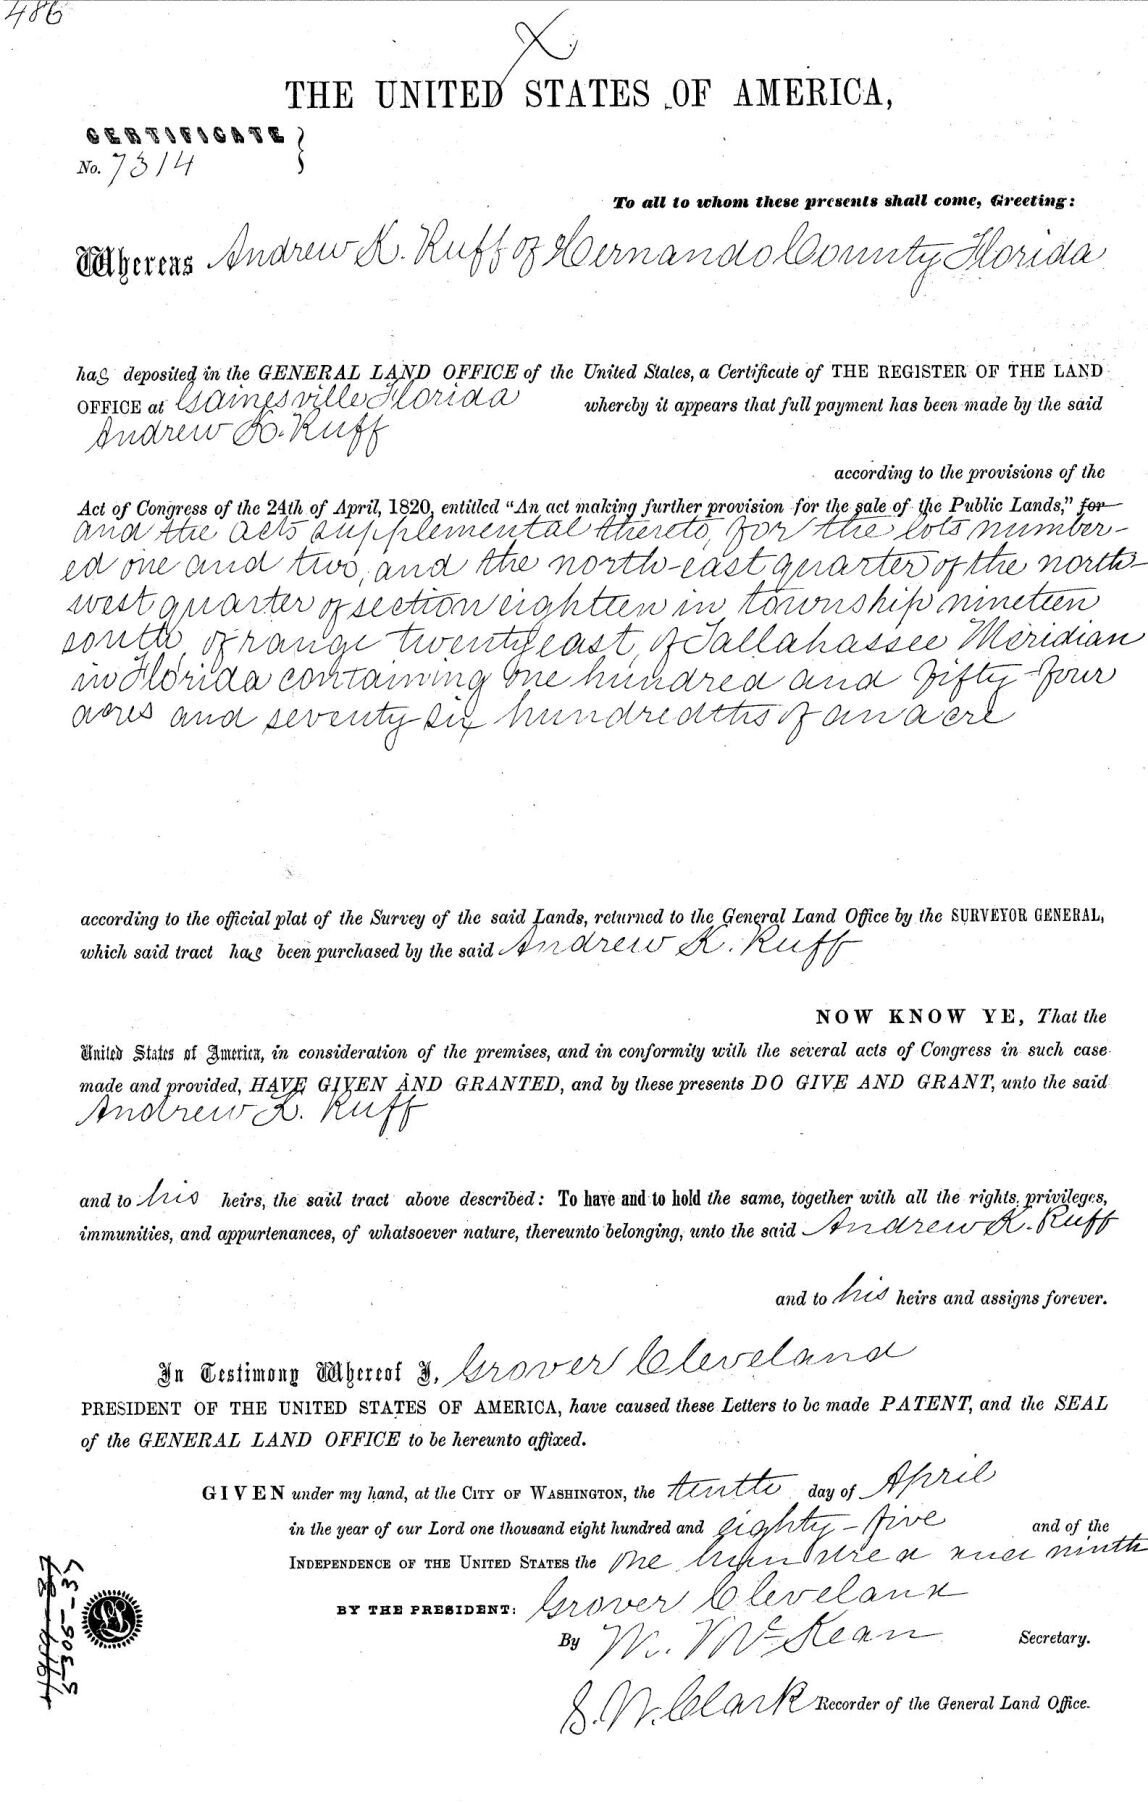 486
X
THE UNITED STATES OF AMERICA,
CERTIFICATE
No. 7314
To all to whom these presents shall come, Greeting:
Whereas Andrew K. Ruff of Hernando County Florida
has deposited in the GENERAL LAND OFFICE of the United States, a Certificate of THE REGISTER OF THE LAND
OFFICE at Gainesville Florida whereby it appears that full payment has been made by the said
Andrew K. Ruff
according to the provisions of the
Act of Congress of the 24th of April, 1820, entitled "An act making further provision for the sale of the Public Lands," for
and the acts supplemental thereto, for the lots number-
ed one and two, and the north-east quarter of the north-
west quarter of section eighteen in township nineteen
south, of range twenty east, of Tallahassee Meridian
in Florida containing one hundred and fifty-four
acres and seventy six hundredths of an acre
according to the official plat of the Survey of the said Lands, returned to the General Land Office by the SURVEYOR GENERAL,
which said tract has been purchased by the said Andrew K. Ruff
NOW KNOW YE, That the
United States of America, in consideration of the premises, and in conformity with the several acts of Congress in such case
made and provided, HAVE GIVEN AND GRANTED, and by these presents DO GIVE AND GRANT, unto the said
Andrew K. Ruff
and to his heirs, the said tract above described: To have and to hold the same, together with all the rights, privileges,
immunities, and appurtenances, of whatsoever nature, thereunto belonging, unto the said Andrew K. Ruff
and to his heirs and assigns forever.
In Testimony Whereof I, Grover Cleveland
PRESIDENT OF THE UNITED STATES OF AMERICA, have caused these Letters to be made PATENT, and the SEAL
of the GENERAL LAND OFFICE to be hereunto affixed.
GIVEN under my hand, at the CITY OF WASHINGTON, the tenth day of April
in the year of our Lord one thousand eight hundred and eighty-five and of the
INDEPENDENCE OF THE UNITED STATES the one hundred and ninth
BY THE PRESIDENT: Grover Cleveland
By M. McKean Secretary.
S. W. Clark Recorder of the General Land Office.
5-305-37